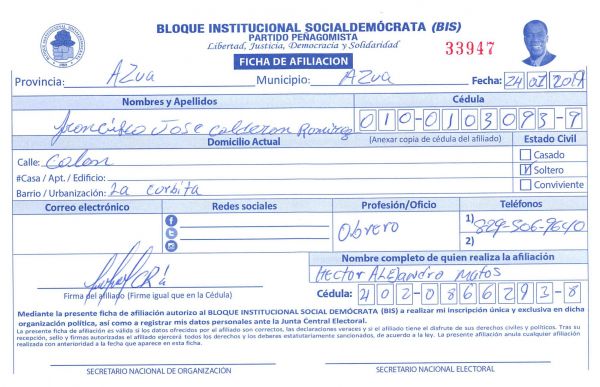 BLOQUE INSTITUCIONAL SOCIALDEMÓCRATA (BIS)
PARTIDO PEÑAGOMISTA
Libertad, Justicia, Democracia y Solidaridad
33947
FICHA DE AFILIACION
Provincia: AZua Municipio: AZua Fecha: 24 01 2019
Nombres y Apellidos Cédula
Francisco Jose Calderon Ramirez 010-0103093-9
Domicilio Actual (Anexar copia de cédula del afiliado) Estado Civil
Calle: Colon Casado
#Casa / Apt. / Edificio: Soltero
Barrio / Urbanización: La curbita Conviviente
Correo electrónico Redes sociales Profesión/Oficio Teléfonos
Obrero 1) 829-506-9640
2)
Nombre completo de quien realiza la afiliación
Hector ALEjandro Matos
Firma del afiliado (Firme igual que en la Cédula) Cédula: 402-0866293-8
Mediante la presente ficha de afiliación autorizo al BLOQUE INSTITUCIONAL SOCIAL DEMÓCRATA (BIS) a realizar mi inscripción única y exclusiva en dicha
organización política, así como a registrar mis datos personales ante la Junta Central Electoral.
La presente ficha de afiliación es válida si los datos ofrecidos por el afiliado son correctos, las declaraciones veraces y si el afiliado tiene el disfrute de sus derechos civiles y políticos. Tras su
recepción, sello y firmas autorizadas el afiliado ejercerá todos los derechos y los deberes estatutariamente sancionados, de acuerdo a la ley. La presente afiliación anula cualquier afiliación
realizada con anterioridad a la fecha que aparece en esta ficha.
SECRETARIO NACIONAL DE ORGANIZACIÓN SECRETARIO NACIONAL ELECTORAL